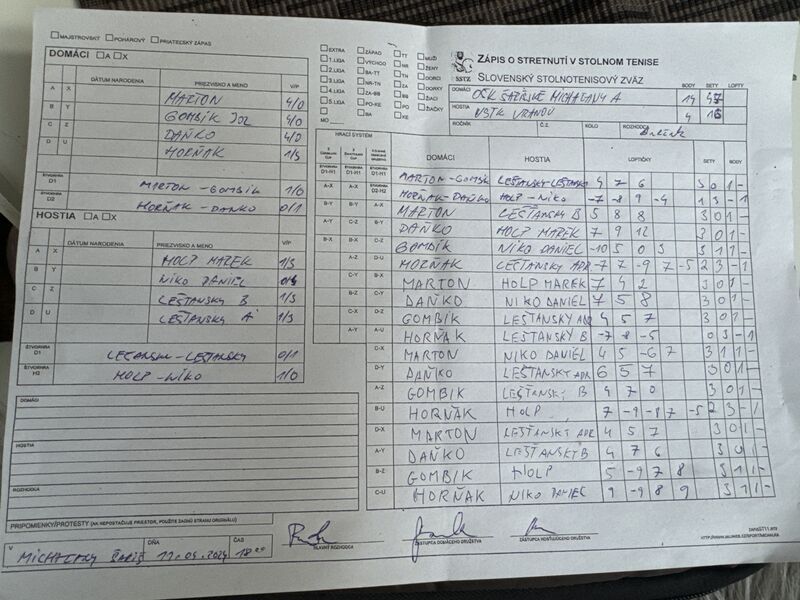 MAJSTROVSKÝ POHÁROVÝ PRIATEĽSKÝ ZÁPAS
DOMÁCI A X
DÁTUM NARODENIA PRIEZVISKO A MENO V/P
A X MARTON 4/0
B Y GOMBÍK 4/0
C Z DAŇKO 4/0
D U HORŇAK 1/3
ŠTVORHRA D1 MARTON - GOMBÍK 1/0
ŠTVORHRA D2 HORŇAK - DAŇKO 0/1
HOSTIA A X
DÁTUM NARODENIA PRIEZVISKO A MENO V/P
A X HOLP MAREK 1/3
B Y NIKO DANIEL
C Z LEŠŤANSKY B 1/3
D U LEŠŤANSKY A 1/3
ŠTVORHRA D1 LEŠŤANSKY - LEŠŤANSKY 0/1
ŠTVORHRA H2 HOLP - NIKO 1/0
DOMÁCI
HOSTIA
ROZHODCA
PRIPOMIENKY/PROTESTY (AK NEPOSTAČUJE PRIESTOR, POUŽITE ZADNÚ STRANU ORIGINÁLU)
V DŇA ČAS
MICHAĽANY 11.09.2024 18
EXTRA ZÁPAD TT MUŽI
1.LIGA VÝCHOD NR ŽENY
2.LIGA BA-TT TN DORCI
3.LIGA NR-TN ZA DORKY
4.LIGA ZA-BB BB ŽIACI
5.LIGA PO-KE PO ŽIAČKY
MO BA KE
SSTZ
ZÁPIS O STRETNUTÍ V STOLNOM TENISE
SLOVENSKÝ STOLNOTENISOVÝ ZVÄZ
BODY SETY LOPTY
DOMÁCI OŠK ŠARIŠSKÉ MICHAĽANY A 14
HOSTIA VSTK VRANOV 4
ROČNÍK Č.Z. KOLO ROZHODCA
HRACÍ SYSTÉM
DOMÁCI HOSTIA LOPTIČKY SETY BODY
ŠTVORHRA D1-H1 MARTON-GOMBÍK LEŠŤANSKY-LEŠŤANSKY 4 7 6 3 0 1 -
A-X HORŇAK-DAŇKO HOLP - NIKO -7 -8 9 -4 1 3 - 1
B-Y MARTON LEŠŤANSKY B 5 8 8 3 0 1 -
A-Y DAŇKO HOLP MAREK 7 9 12 3 0 1 -
B-X GOMBÍK NIKO DANIEL -10 5 0 3 3 1 1 -
A-U HORŇAK LEŠŤANSKY ADR -7 7 -9 7 -5 2 3 - 1
B-X MARTON HOLP MAREK 7 4 2 3 0 1 -
C-Y DAŇKO NIKO DANIEL 7 5 8 3 0 1 -
D-X GOMBIK LEŠŤANSKÝ ADR 4 5 7 3 0 1 -
A-U HORŇAK LEŠŤANSKÝ B -7 -8 -5 0 3 - 1
C-X MARTON NIKO DANIEL 4 5 -6 7 3 1 1 -
D-Y DAŇKO LEŠŤANSKY ADR 6 5 7 3 0 1 -
A-Z GOMBIK LEŠŤANSKY B 9 7 0 3 0 1 -
B-U HORŇAK HOLP 7 -9 -8 7 -5 2 3 - 1
D-X MARTON LEŠŤANSKY ADR 4 5 7 3 0 1 -
A-Y DAŇKO LEŠŤANSKÝ B 4 7 6 3 0 1 -
B-Z GOMBIK HOLP 5 -9 7 8 3 1 1 -
C-U HORŇAK NIKO DANIEL 9 -9 8 9 3 1 1 -
HLAVNÝ ROZHODCA ZÁSTUPCA DOMÁCEHO DRUŽSTVA ZÁSTUPCA HOSŤUJÚCEHO DRUŽSTVA